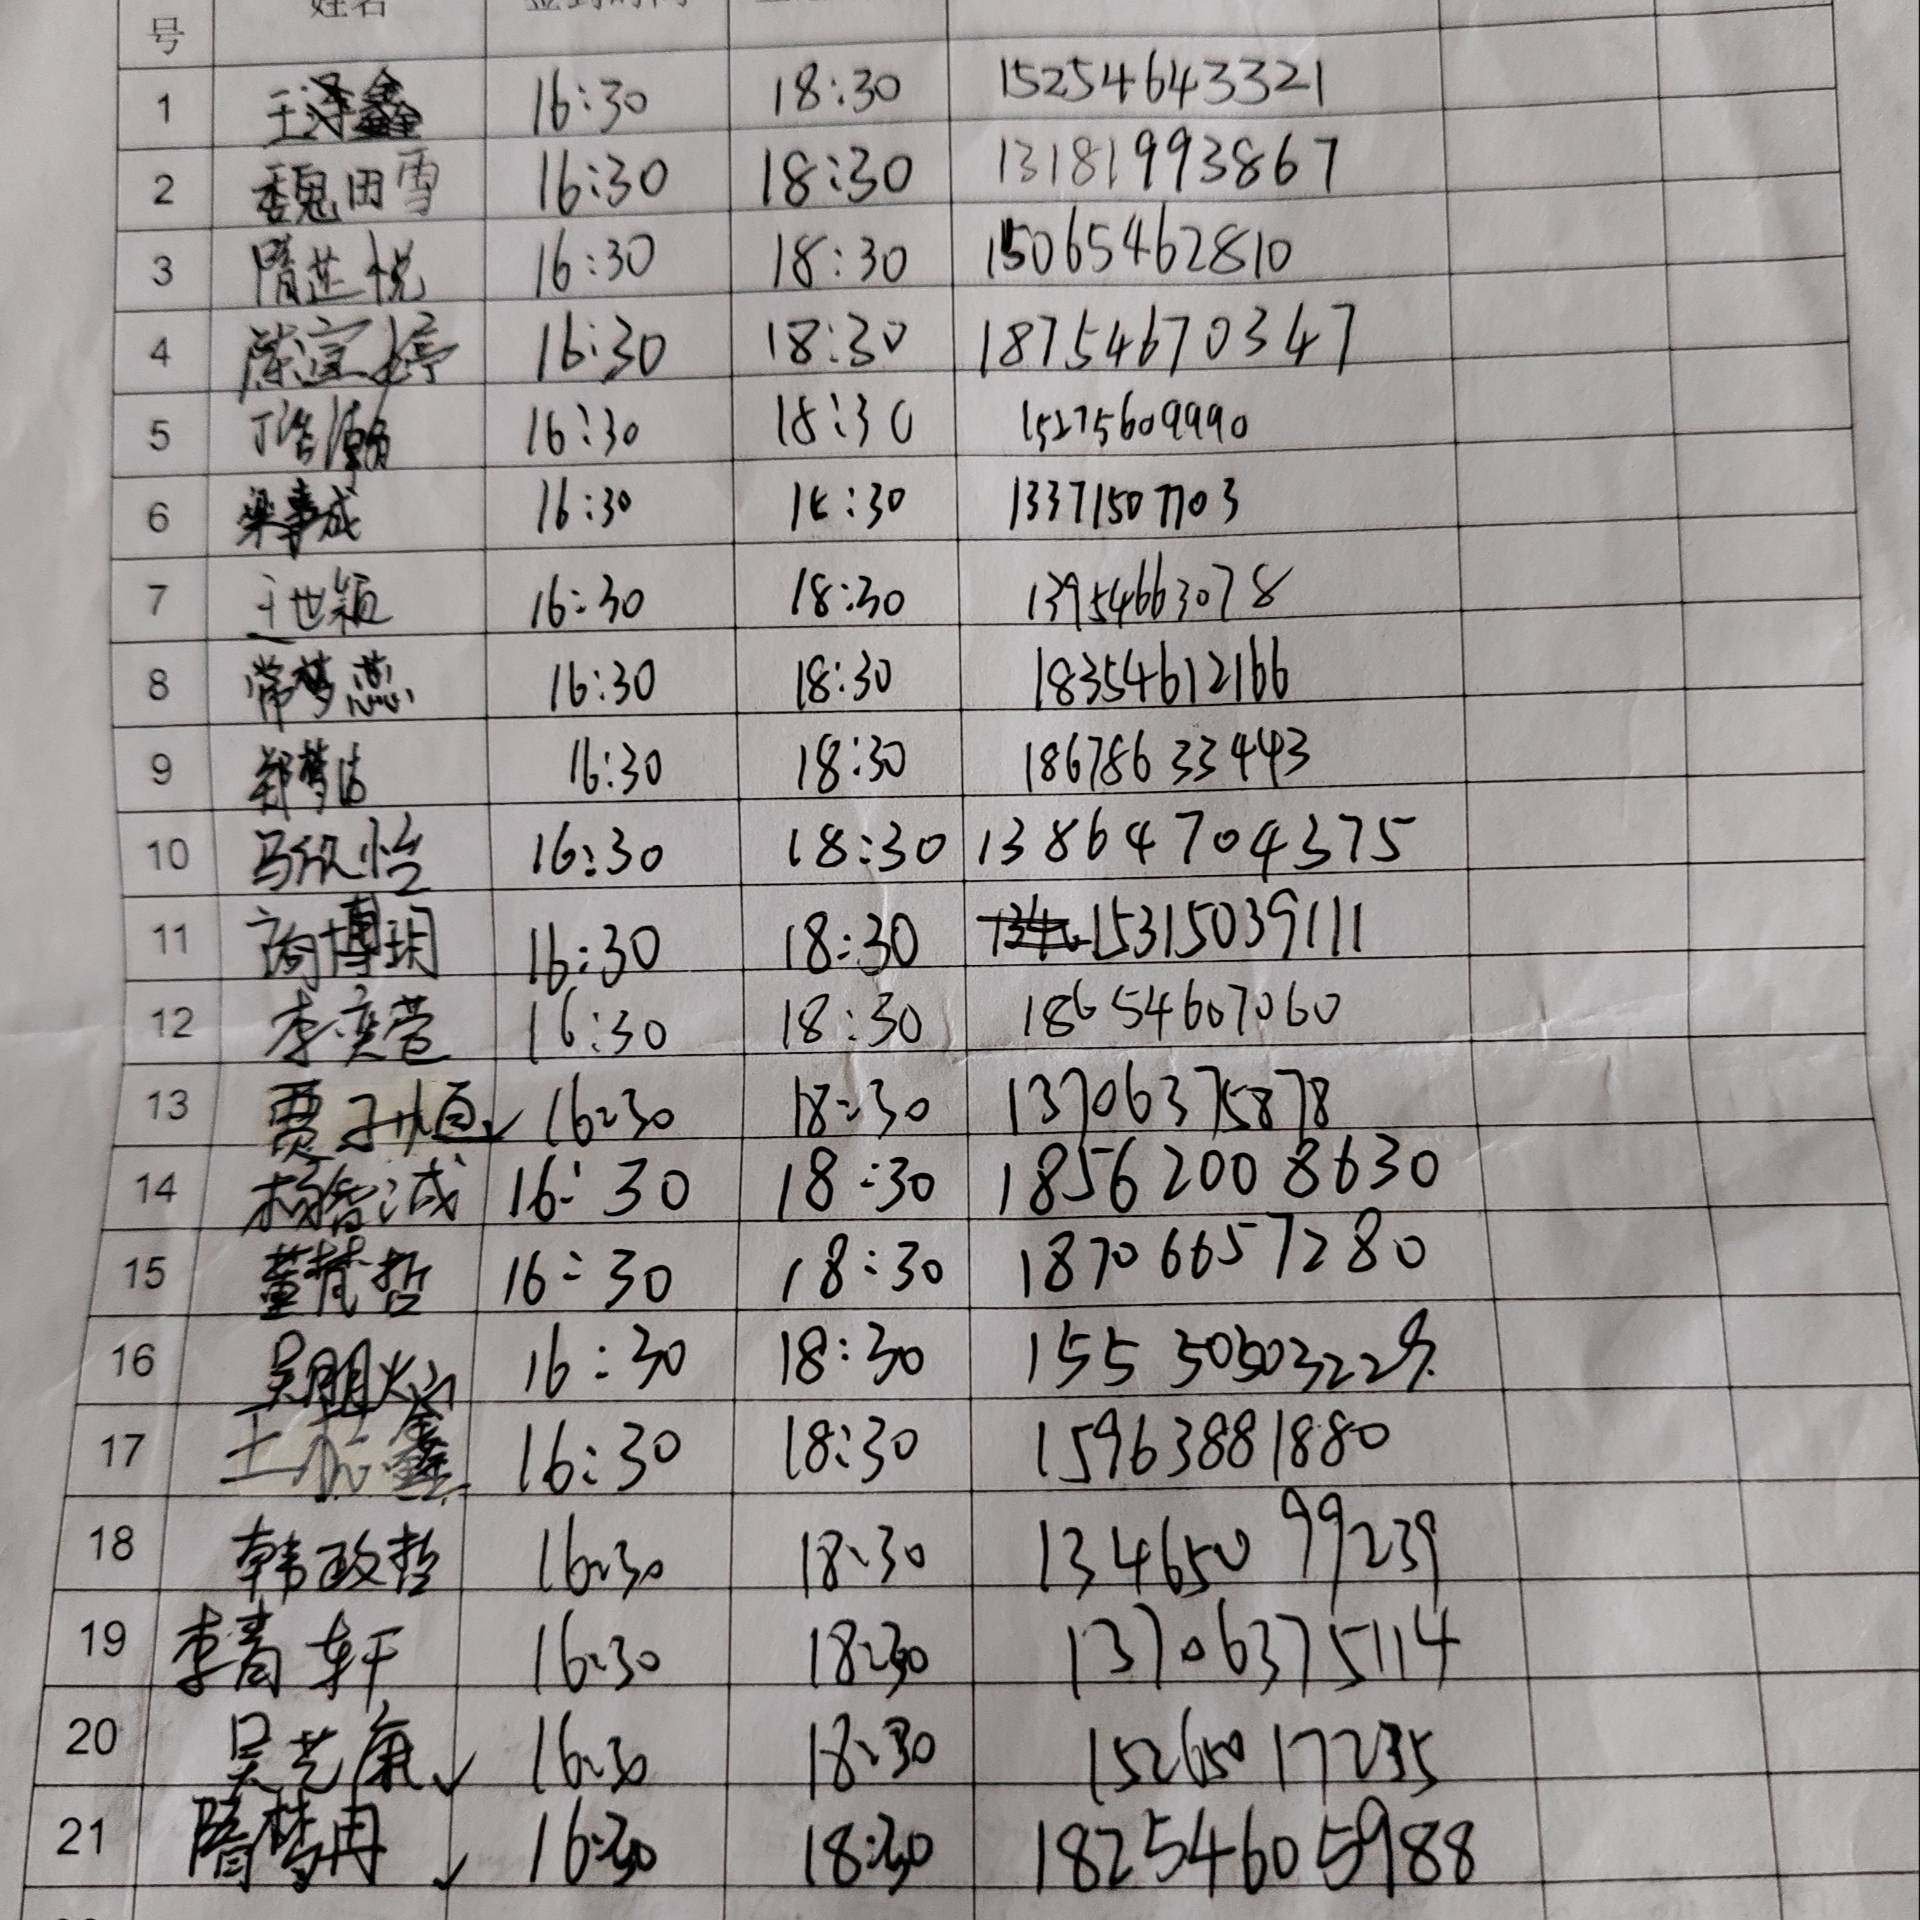 号 姓名
1 王泽鑫 16:30 18:30 15254643321
2 魏田雪 16:30 18:30 13181993867
3 隋芷悦 16:30 18:30 15065462810
4 陈宣婷 16:30 18:30 18754670347
5 丁浩瀚 16:30 18:30 15275609990
6 梁事成 16:30 18:30 13371507703
7 王世颖 16:30 18:30 13954663078
8 常梦蕊 16:30 18:30 18354612166
9 郑梦洁 16:30 18:30 18678633443
10 马欣怡 16:30 18:30 13864704375
11 商博玥 16:30 18:30 15315039111
12 李奕萱 16:30 18:30 18654607060
13 贾子恒 16:30 18:30 13706375878
14 杨皓诚 16:30 18:30 18562008630
15 董梵哲 16:30 18:30 18706657280
16 吴明灿 16:30 18:30
17 王 鑫 16:30 18:30 15963881880
18 韩政哲 16:30 18:30 13465099239
19 李青轩 16:30 18:30 13706375114
20 吴艺 16:30 18:30 15265017235
21 隋梦冉 16:30 18:30 18254605988